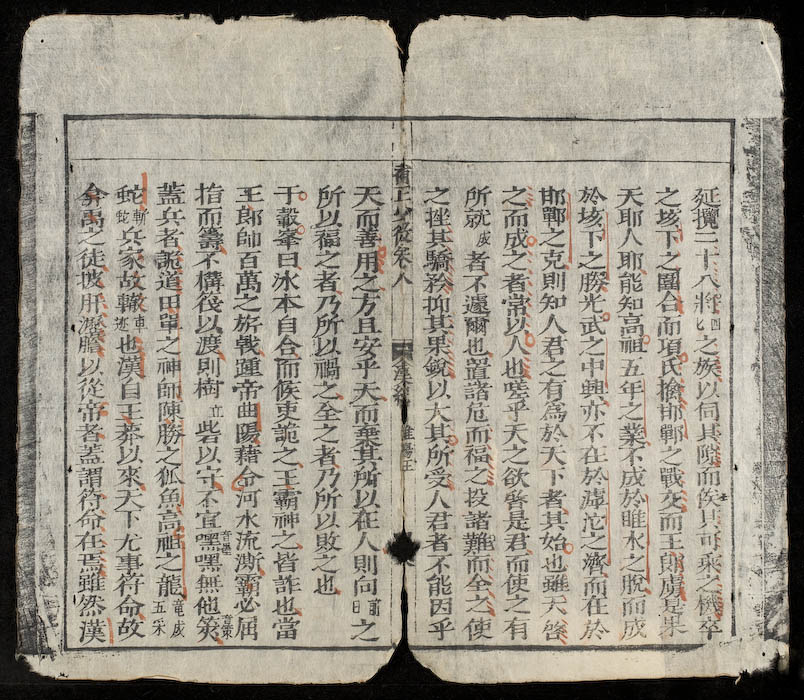 延攬二十八將四七之族以伺其隙而俟其可乘之機卒
之垓下之圍合而項氏擒邯鄲之戰交而王郎虜是果
天耶人耶能知高祖五年之業不成於睢水之脫而成
於垓下之勝光武之中興亦不在於滹沱之濟而在於
邯鄲之克則知人君之有為於天下者其始也雖天啓
之而成之者常以人也嗟乎天之欲啓是君而使之有
所就成者不遽爾也置諸危而福之投諸難而全之使
之挫其驕矜抑其果銳以大其所受人君者不能因乎
卷八
淮陽王
天而善用之方且安乎天而棄其所以在人則向前日之
所以福之者乃所以禍之全之者乃所以敗之也
于穀峯曰冰本自合而候吏詭之王霸神之皆詐也當
王郎帥百萬之旅戟運帝曲陽藉令河水流澌霸必屈
指而籌不搆筏以渡則樹立砦以守不宜嘿嘿無他筴音策
蓋兵者詭道田單之神師陳勝之狐魚高祖之龍竜成五采
蛇斬蛇兵家故轍車迹也漢自王莽以來天下尤事符命故
弇禹之徒披肝瀝膽以從帝者蓋謂符命在焉雖然漢